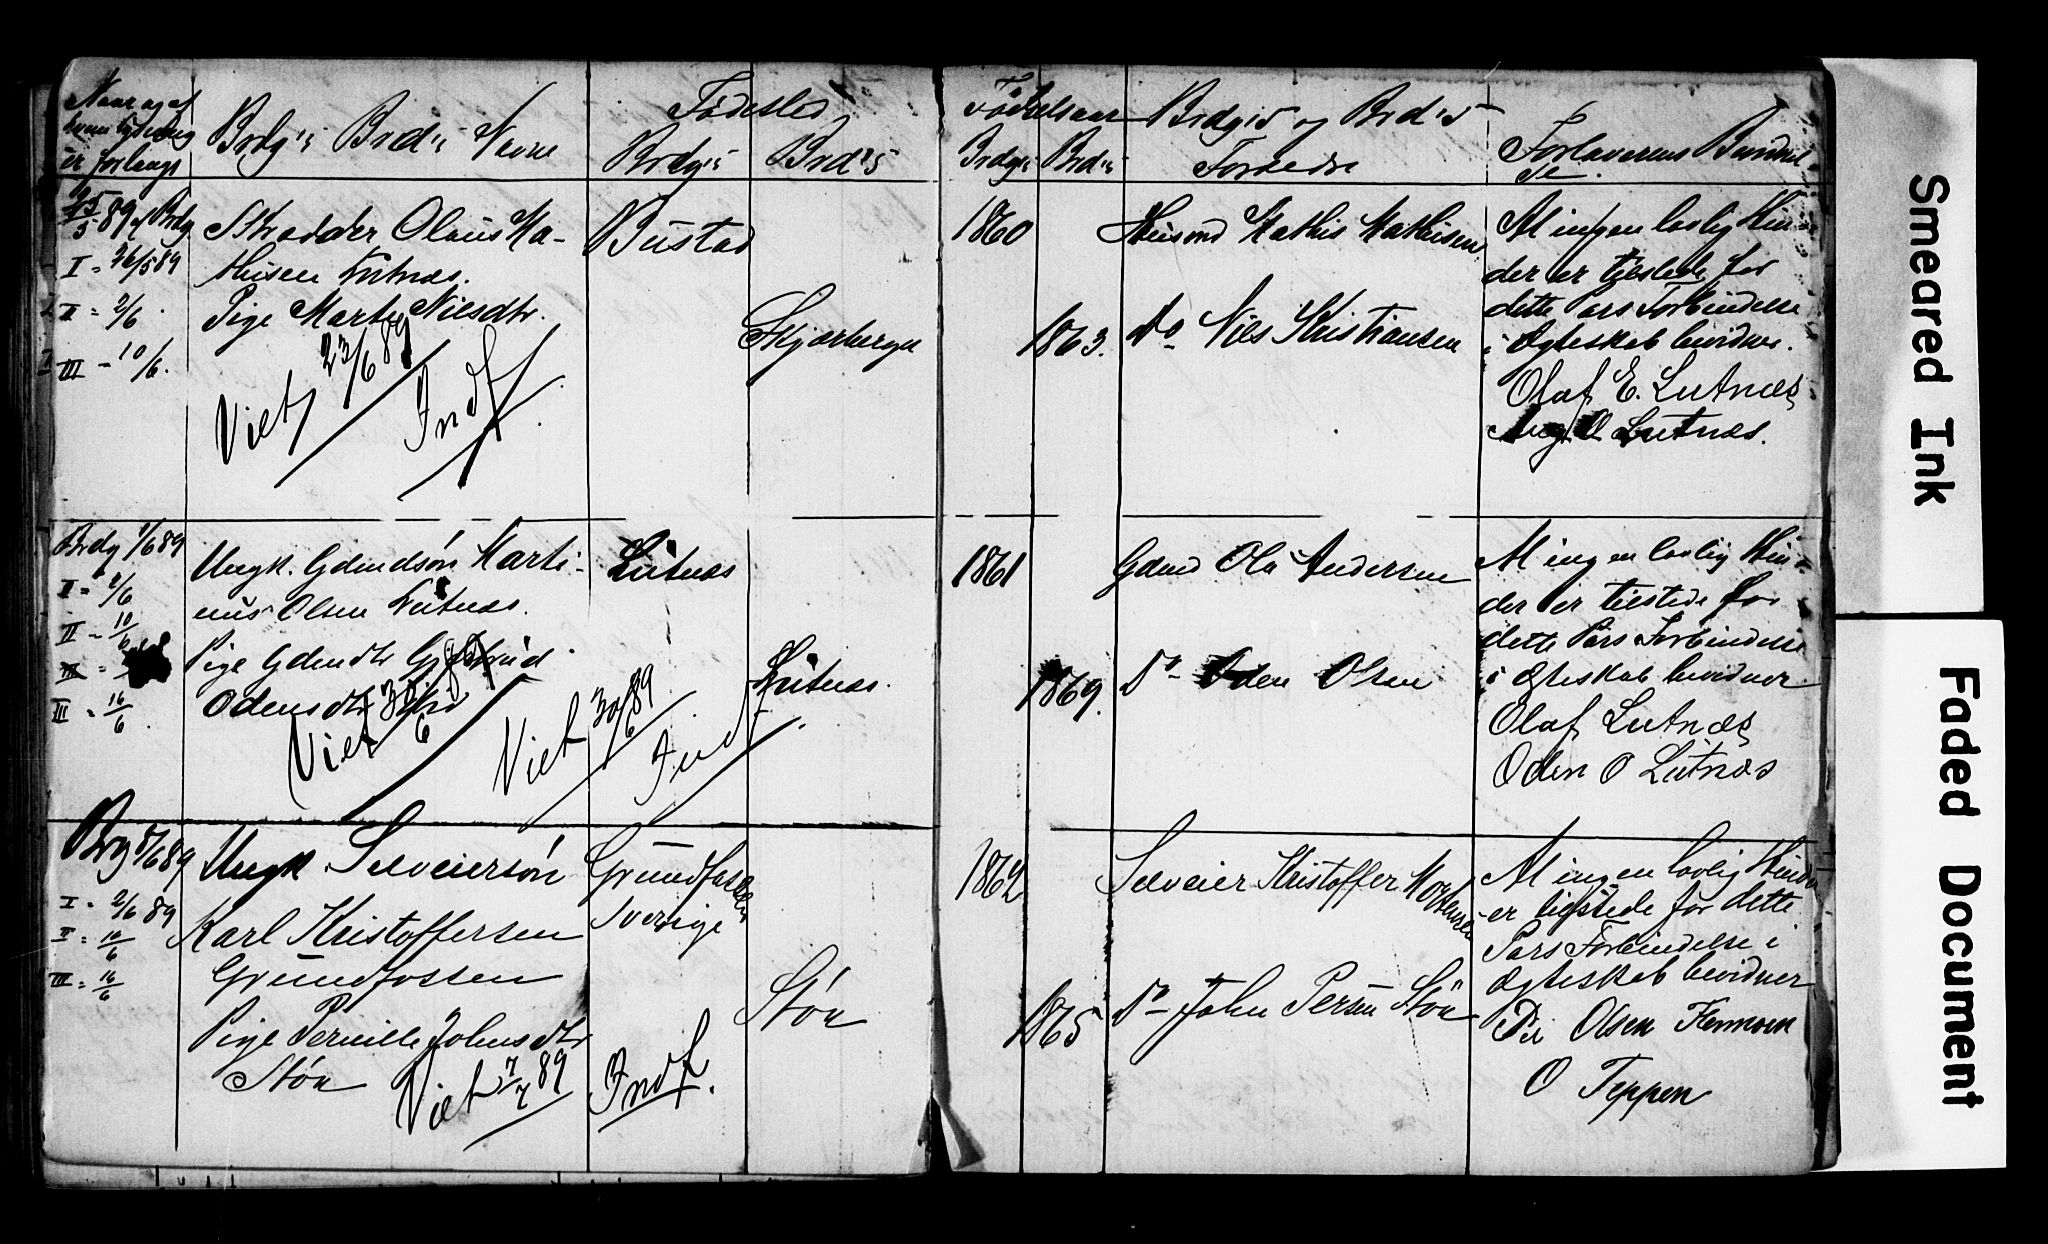 Naar og af
hvem lysning
er forlangt
Brdg's Brd's Navne
Fødested
Brdg's
Brd's
Fødselsaar
Brdg's Brd's
Brdg's og Brd's
Forældre
Forloverens Bevidnel
se.
25/5 89 af Brdg
I = 26/5 89
II = 2/6
III - 10/6.
Skrædder Olaus Ma-
thisen Lutnæs.
Pige Marte Nielsdtr.
Viet 23/6 89
Indf
Bustad
Skjærberget
1860
1863.
Husmd Mathis Mathisen
Do Nils Kristiansen
At ingen lovlig Hin-
der er tilstede for
dette Pars Forbindelse
i Ægteskab bevidner.
Olaf E. Lutnæs
Aug O Lutnæs.
Brdg 1/6 89
I = 2/6
II = 10/6
III =
III = 16/6.
Ungk. Gdmdsøn Marti-
nus Olsen Lutnæs.
Pige Gdmdtr
Odensdtr
Viet 30/6 89
Viet 30/6 89
Indf
Lutnæs
Lutnæs.
1861
1869.
Gdmd Ola Andersen
Do Oden Olsen
At ingen lovlig Hin-
der er tilstede for
dette Pars Forbindelse
i Ægteskab bevidner
Olaf Lutnæs
Oden O Lutnæs
Brg 8/6 89
I = 2/6 89
II = 10/6
III = 16/6
Ungk Selveiersøn
Karl Kristoffersen
Grundfossen
Pige Pernille Johnsdtr
Støa
Viet 7/7 89
Indf.
Grundfossen
Sverige
Støa
1862
1865
Selveier Kristoffer Mortensen
Do John Persen Støa
At ingen lovlig Hinder
er tilstede for dette
Pars Forbindelse i
Ægteskab bevidner
Per Olsen
O Teppen
Smeared Ink
Faded Document